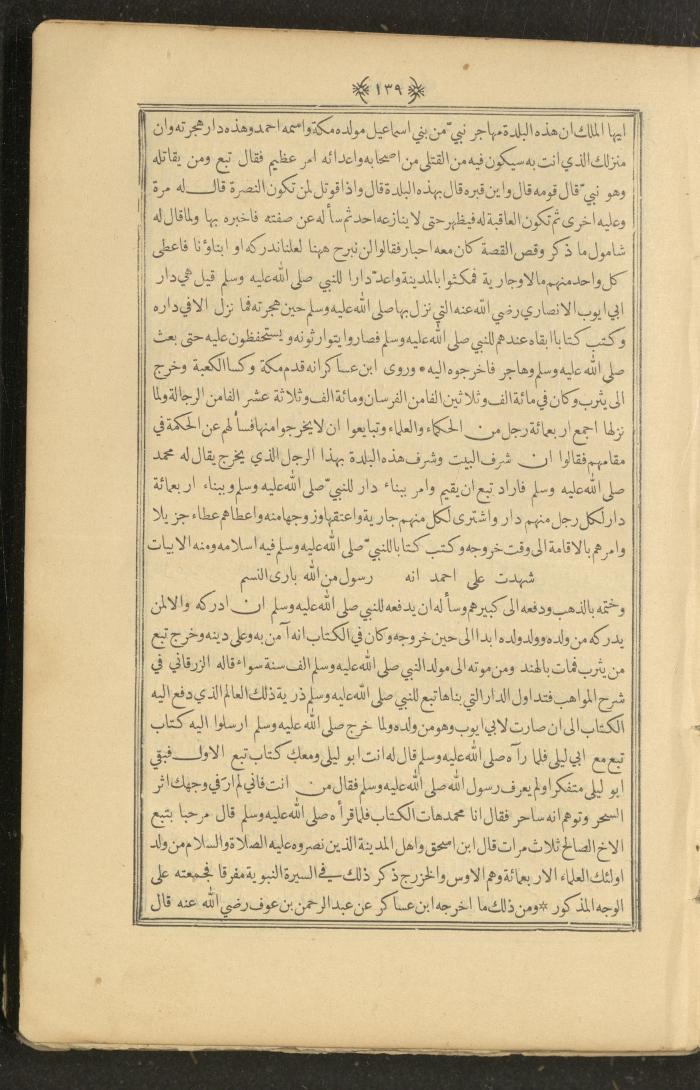 ١٣٩
ايها الملك ان هذه البلدة مهاجر نبيّ من بني اسماعيل مولده مكة واسمه احمد وهذه دار هجرته وان
منزلك الذي انت به سيكون فيه من القتلى من اصحابه واعدائه امر عظيم فقال تبع ومن يقاتله
وهو نبيّ قال قومه قال واين قبره قال بهذه البلدة قال واذا قوتل لمن تكون النصرة قال له مرة
وعليه اخرى ثم تكون العاقبة له فيظهر حتى لا ينازعه احد ثم سأله عن صفته فاخبره بها ولما قال له
شامول ما ذكر وقص القصة كان معه احبار فقالوا لن نبرح ههنا لعلنا ندركه او ابناؤنا فاعطى
كل واحد منهم مالا وجارية فمكثوا بالمدينة واعدّ دارا للنبي صلى الله عليه وسلم قيل هي دار
ابي ايوب الانصاري رضي الله عنه التي نزل بها صلى الله عليه وسلم حين هجرته فما نزل الا في داره
وكتب كتابا ابقاه عندهم للنبي صلى الله عليه وسلم فصاروا يتوارثونه ويستحفظون عليه حتى بعث
صلى الله عليه وسلم وهاجر فاخرجوه اليه • وروى ابن عساكر انه قدم مكة وكسا الكعبة وخرج
الى يثرب وكان في مائة الف وثلاثين الفا من الفرسان ومائة الف وثلاثة عشر الفا من الرجالة ولما
نزلها اجمع اربعمائة رجل من الحكماء والعلماء وتبايعوا ان لا يخرجوا منها فسألهم عن الحكمة في
مقامهم فقالوا ان شرف البيت وشرف هذه البلدة بهذا الرجل الذي يخرج يقال له محمد
صلى الله عليه وسلم فاراد تبع ان يقيم وامر ببناء دار للنبيّ صلى الله عليه وسلم وببناء اربعمائة
دار لكل رجل منهم دار واشترى لكل منهم جارية واعتقها وزوجها منه واعطاهم عطاء جزيلا
وامرهم بالاقامة الى وقت خروجه وكتب كتابا للنبيّ صلى الله عليه وسلم فيه اسلامه ومنه الابيات
شهدت على احمد انه رسول من الله بارى النسم
وختمه بالذهب ودفعه الى كبيرهم وسأله ان يدفعه للنبي صلى الله عليه وسلم ان ادركه والا لمن
يدركه من ولده وولد ولده ابدا الى حين خروجه وكان في الكتاب انه آمن به وعلى دينه وخرج تبع
من يثرب فمات بالهند ومن موته الى مولد النبي صلى الله عليه وسلم الف سنة سواء قاله الزرقاني في
شرح المواهب فتداول الدار التي بناها تبع للنبي صلى الله عليه وسلم ذرية ذلك العالم الذي دفع اليه
الكتاب الى ان صارت لابي ايوب وهو من ولده ولما خرج صلى الله عليه وسلم ارسلوا اليه كتاب
تبع مع ابي ليلى فلما رآه صلى الله عليه وسلم قال له انت ابو ليلى ومعك كتاب تبع الاول فبقي
ابو ليلى متفكرا ولم يعرف رسول الله صلى الله عليه وسلم فقال من انت فاني لم ار في وجهك اثر
السحر وتوهم انه ساحر فقال انا محمد هات الكتاب فلما قرأه صلى الله عليه وسلم قال مرحبا بتبع
الاخ الصالح ثلاث مرات قال ابن اسحق واهل المدينة الذين نصروه عليه الصلاة والسلام من ولد
اولئك العلماء الاربعمائة وهم الاوس والخزرج ذكر ذلك في السيرة النبوية مفرقا فجمعته على
الوجه المذكور * ومن ذلك ما اخرجه ابن عساكر عن عبد الرحمن بن عوف رضي الله عنه قال